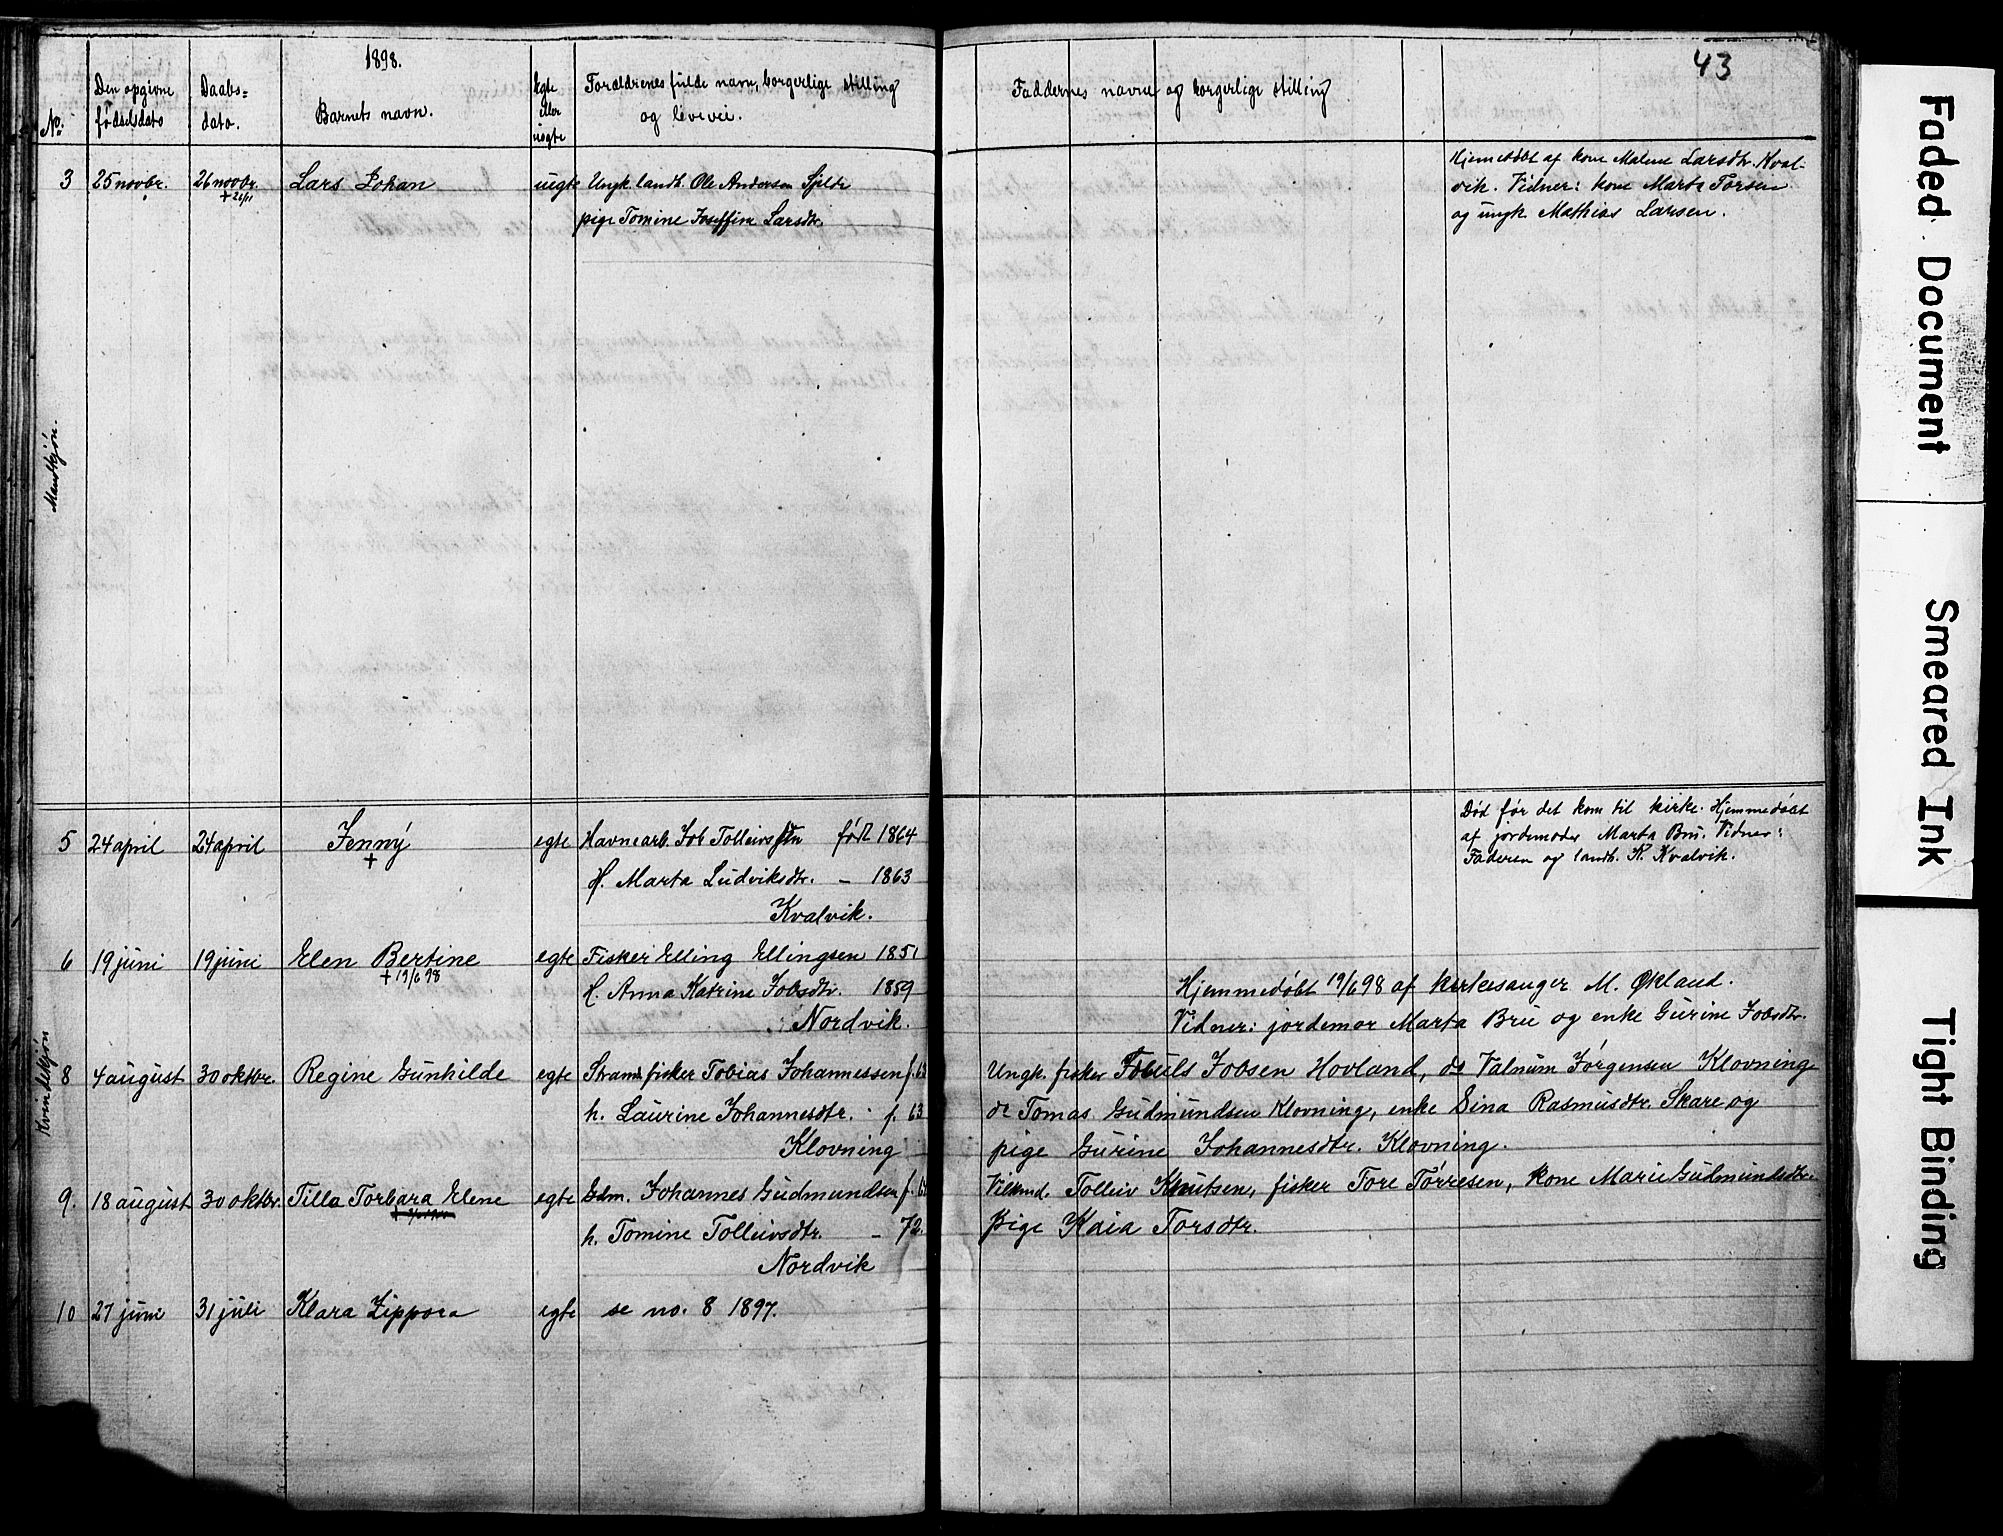 43
1898.
No. Den opgivne fødselsdato Daabs= dato. Barnets navn. Egte eller uegte Forældrenes fulde navn, borgerlige stilling og levevei. Faddernes navne og borgerlige stilling
Mandkjøn.
3 25 novbr. 26 novbr. Lars Johan uegte Ungk. landb. Ole Andersen
+ 26/11
pige Tomine Joseffine Larsdtr.
Hjemmedøbt af kone Malene Larsdtr. Kval-
vik. Vidner: kone Marta Torsen
og ungk. Mathias Larsen.
Kvindekjøn
5 24 april 24 april Jenny egte Havnearb. Job Tolleivsen født 1864
+
H. Marta Ludviksdtr. – 1863
Kvalvik.
Død før det kom til kirke. Hjemmedøbt
af jordemoder Marta Bru. Vidner:
Faderen og landb. K. Kvalvik.
6 19 juni 19 juni Elen Bertine egte Fisker Elling Ellingsen 1851
+ 19/6 98
H. Anna Katrine Jobsdtr. 1859
Nordvik.
Hjemmedøbt 19/6 98 af kirkesanger M. Økland.
Vidner: jordemor Marta Bru og enke Gurine Jobsdtr.
8 4 august 30 oktbr. Regine Gunhilde egte Strandfisker Tobias Johannessen f.
h. Laurine Johannesdtr. f. 63
Klovning
Ungk. fisker Jobsen Hovland, do Valnum Jørgensen Klovning
do Tomas Gudmundsen Klovning, enke Sina Rasmusdtr. Skare og
pige Gurine Johannesdtr. Klovning.
9. 18 august 30 oktbr. Tilla Torbara Elene egte Gdm. Johannes Gudmundsen f.
h. Tomine Tolleivsdtr. – 72.
Nordvik
Tolleiv Knutsen, fisker Tore Tørresen, kone Marie Gudmundsdtr.
Pige Kaia Torsdtr.
10 27 juni 31 juli Klara Zippora egte se no. 8 1897.
Faded Document
Smeared Ink
Tight Binding